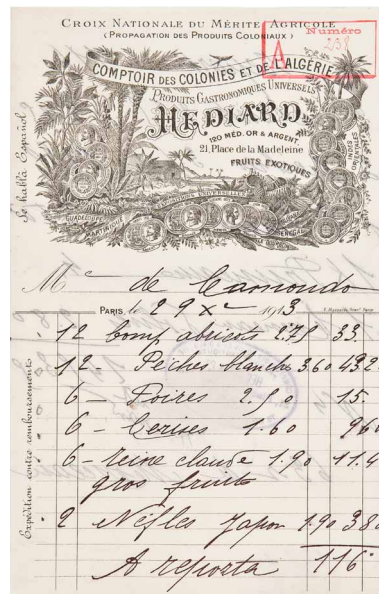 Croix Nationale du Mérite Agricole
(Propagation des Produits Coloniaux)
Numéro
238
A
COMPTOIR DES COLONIES ET DE L'ALGÉRIE
Produits Gastronomiques Universels
HEDIARD
120 MÉD. OR & ARGENT.
21, Place de la Madeleine
FRUITS EXOTIQUES
Se habla Español
INDES ORIENTALES
EXPOSITIONS UNIVERSELLES
GUADELOUPE
MARTINIQUE
SÉNÉGAL
Mr de Camondo
PARIS, le 29 Xre 1913
Expédition contre remboursements
12 comp abricots 2.75 33.
12 - Pêches blanche 3.60 43.2
6 - Poires 2.50 15.
6 - Cerises 1.60 9.60
6 - reine claude 1.90 11.4
gros fruits
2 Nèfles Japon 1.90 3.80
A reporta 116